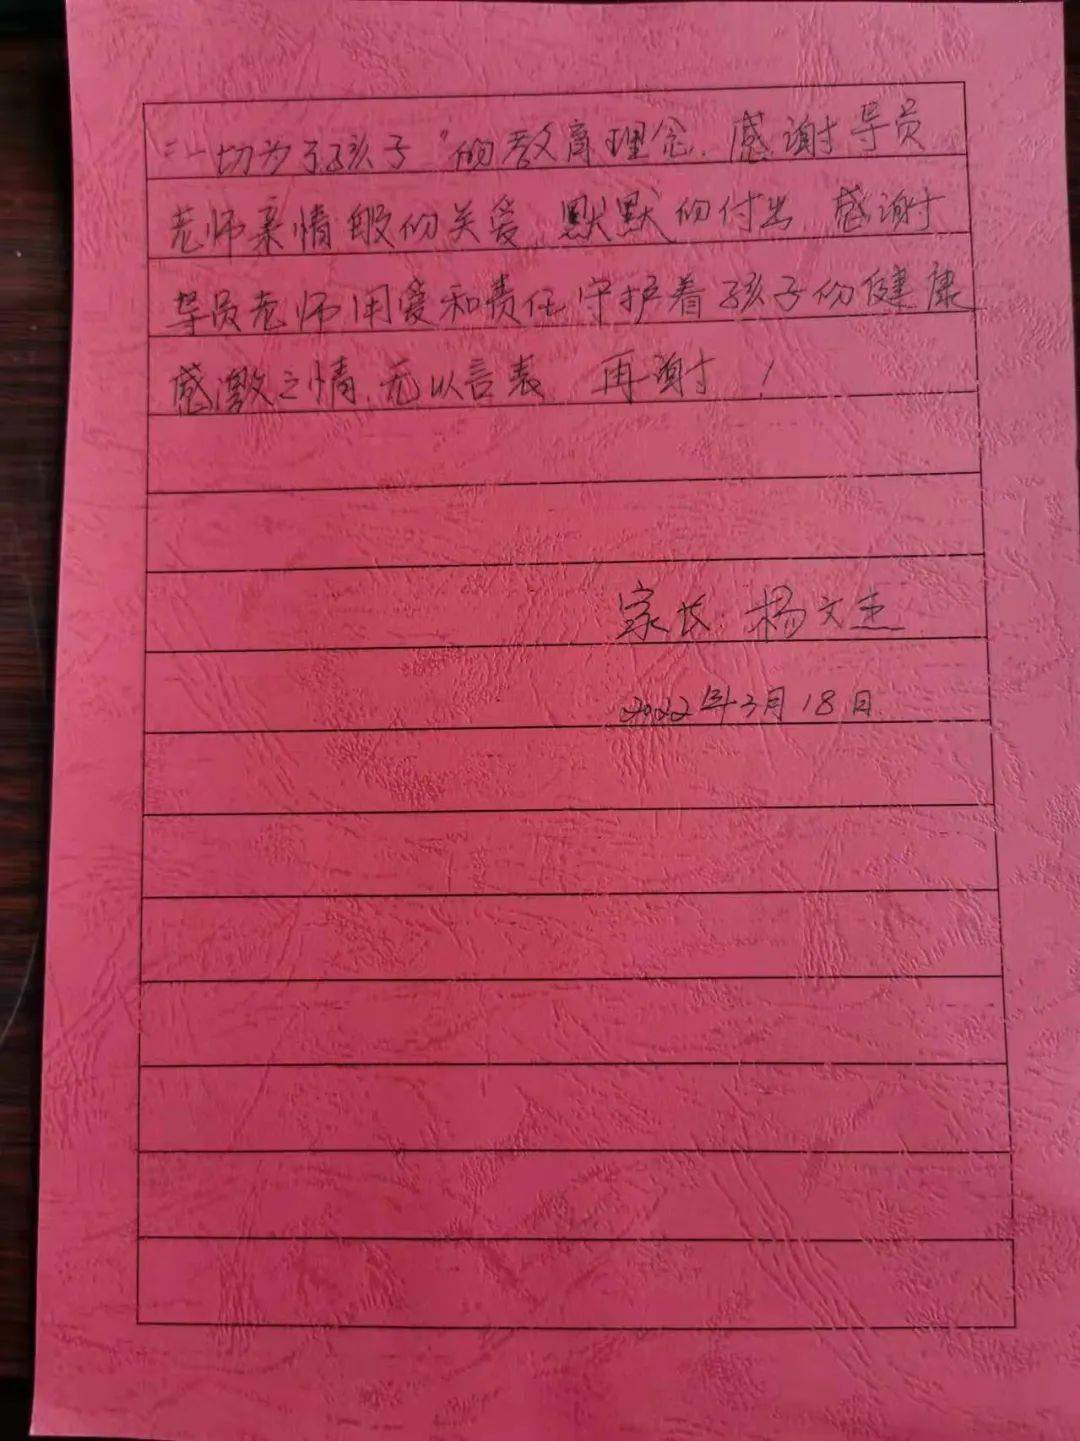 “一切为了孩子”的教育理念.感谢导员
老师亲情般的关爱,默默的付出,感谢
导员老师用爱和责任守护着孩子的健康
感激之情.无以言表,再谢！
家长:杨文杰
2022年3月18日.